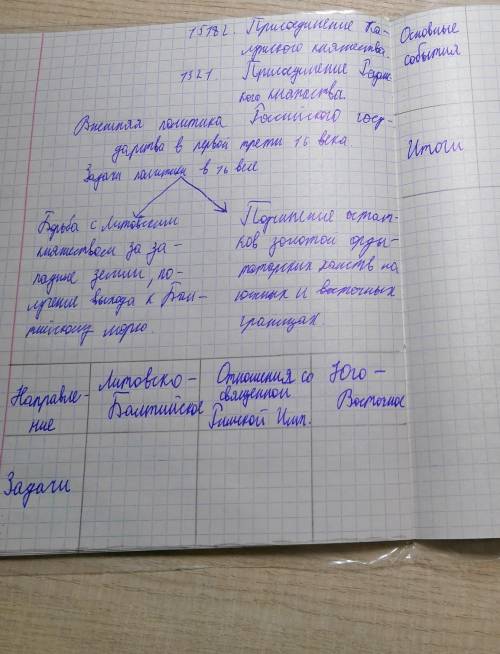 1518г. Присоединение Ка-
лужского княжества.
1521. Присоединение Рязан
кого княжества.
Внешняя политика Российского госу-
дарства в первой трети 16 века.
Задачи политики в 16 веке
Борьба с Литовским
княжеством за за-
падные земли, по-
лучение выхода к Бал-
тийскому морю
Подчинение остат-
ков золотой орды-
татарских ханств на
южных и восточных
границах.
Направле-
ние
Литовско-
Балтийское
Отношения со
священной
Римской Имп.
Юго-
Восточное
Задачи
Основные
события
Итоги